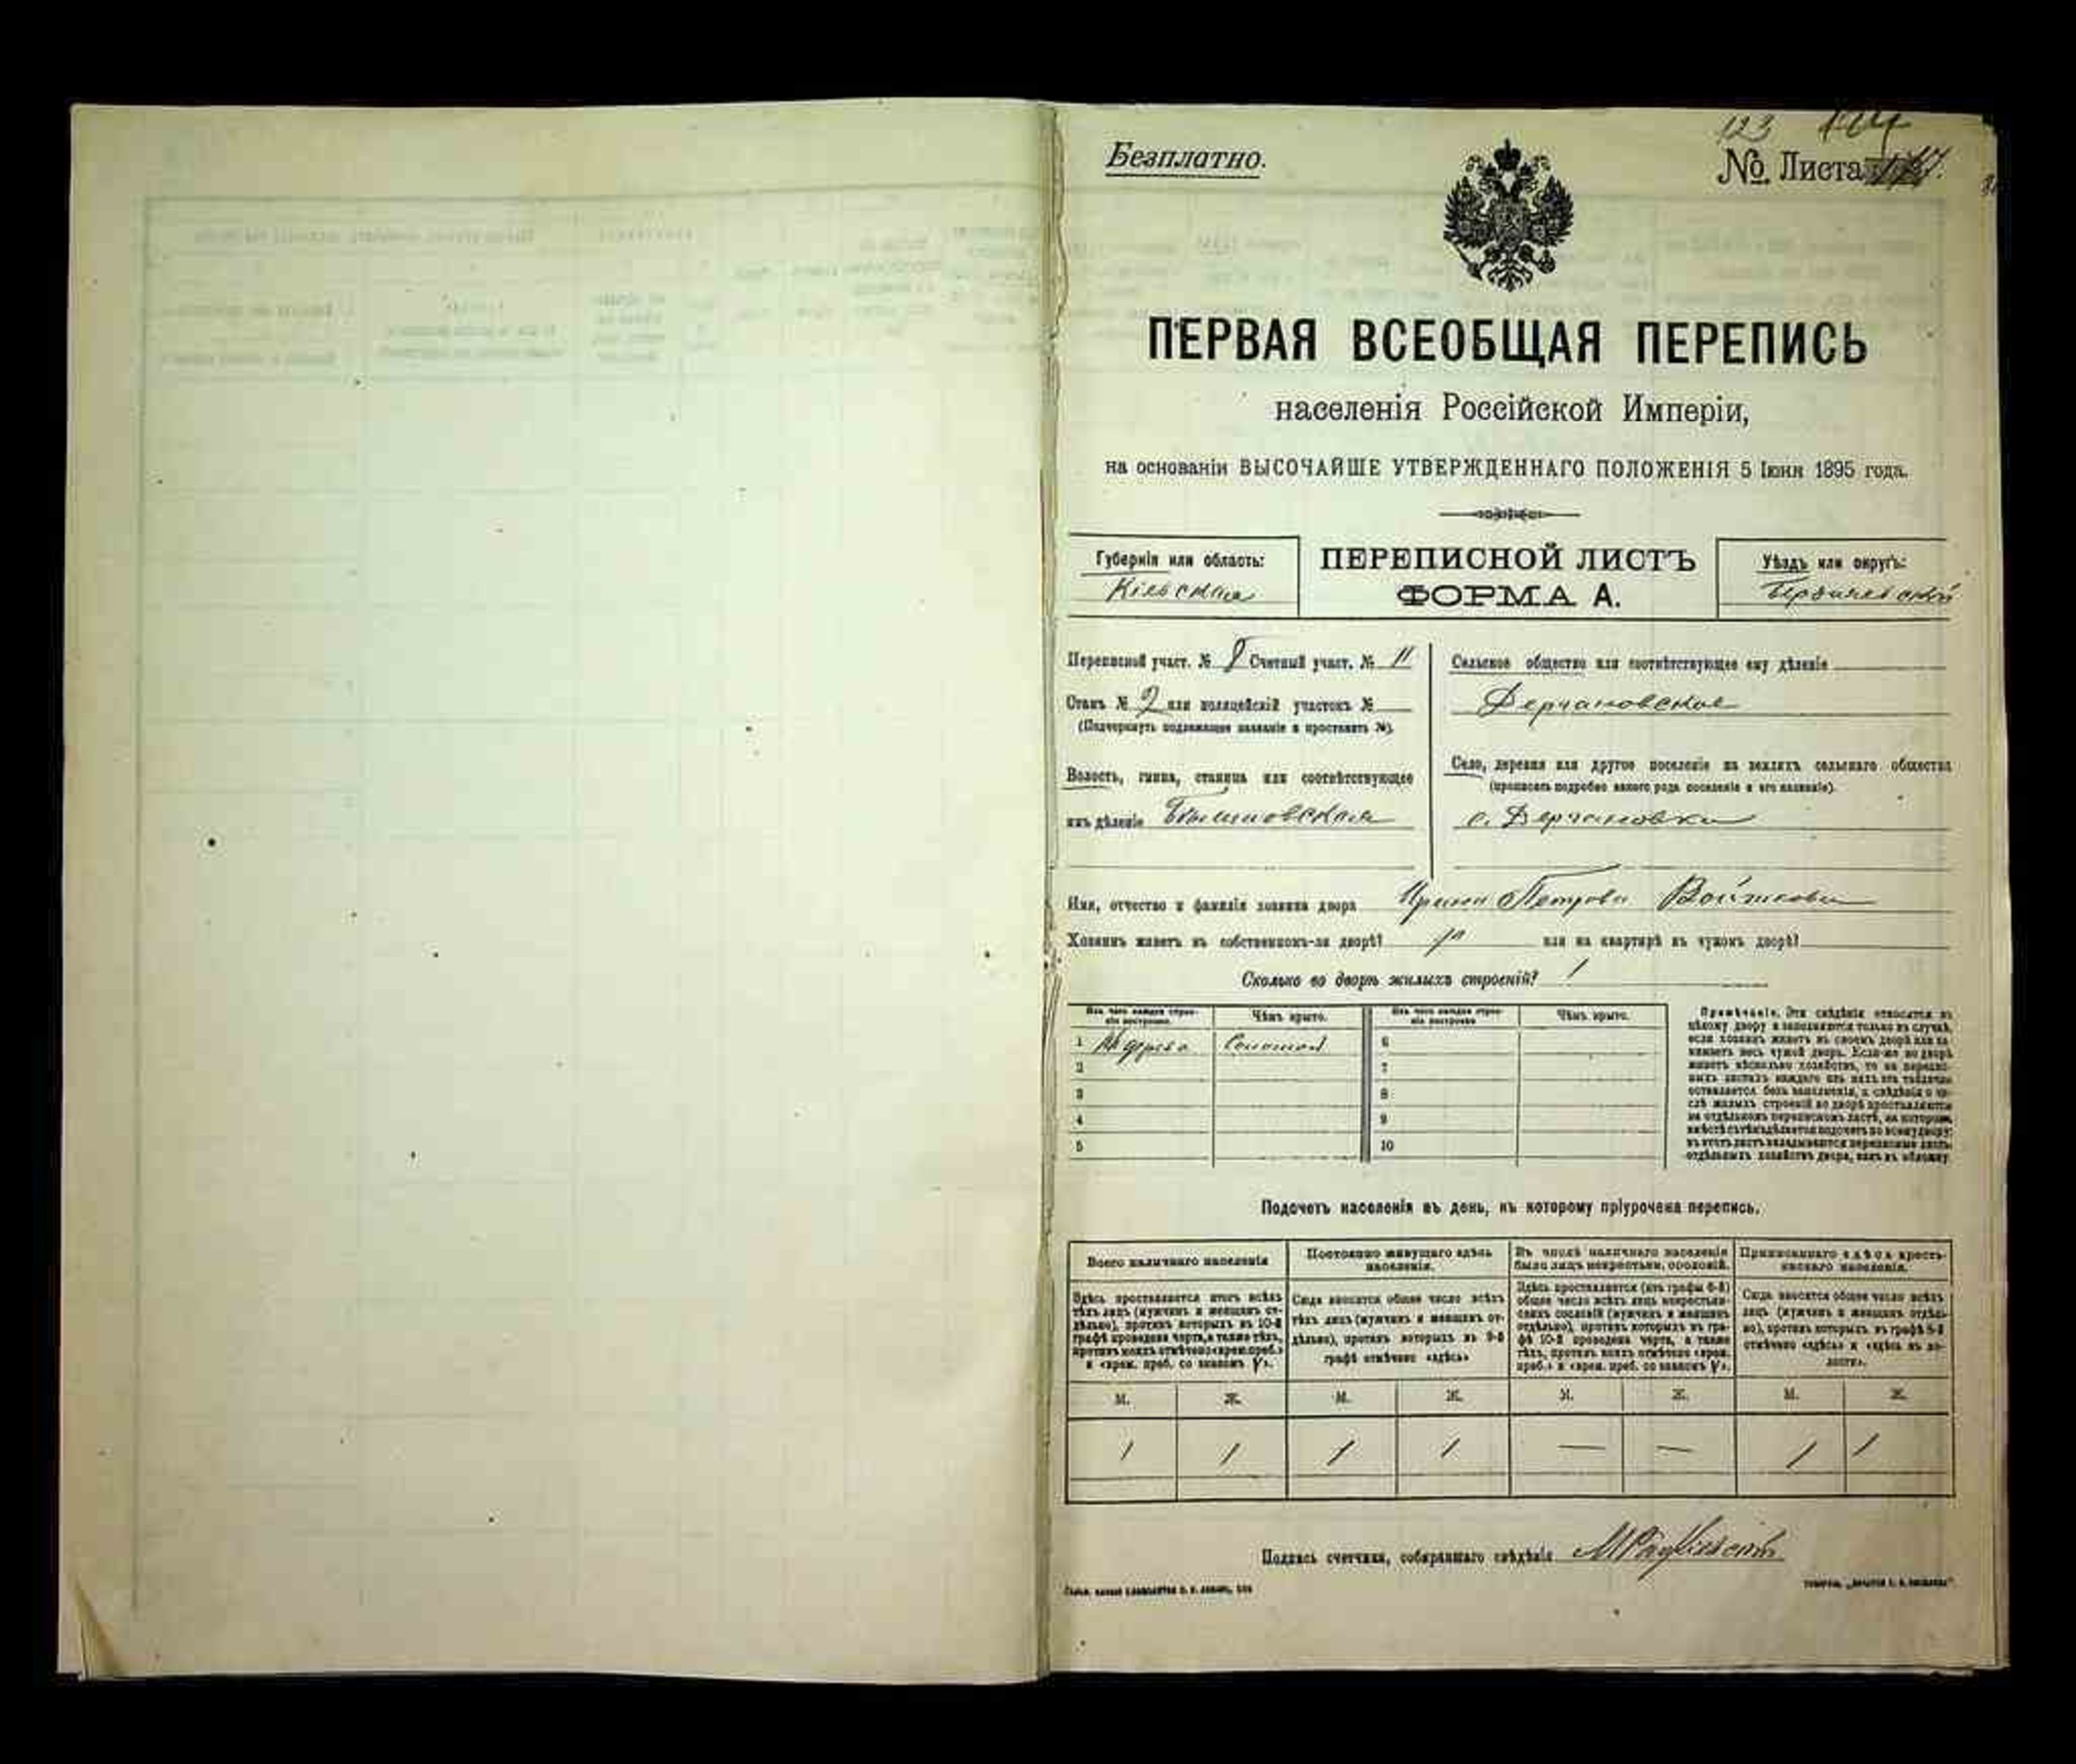 123
Безплатно.
№ Листа
ПЕРВАЯ ВСЕОБЩАЯ ПЕРЕПИСЬ
населенія Россійской Имперіи,
на основаніи ВЫСОЧАЙШЕ УТВЕРЖДЕННАГО ПОЛОЖЕНІЯ 5 Іюня 1895 года.
Губернія или область:
Кіевская
ПЕРЕПИСНОЙ ЛИСТЪ
ФОРМА А.
Уѣздъ или округъ:
Бердичевскій
Переписной участ. № 8 Счетный участ. № 11
Станъ № 2 или полицейскій участокъ №
(Подчеркнуть подлежащее названіе и проставить №).
Волость, гмина, станица или соотвѣтствующее
имъ дѣленіе
Сельское общество или соотвѣтствующее ему дѣленіе
Дерчановское
Село, деревня или другое поселеніе на земляхъ сельскаго общества
(прописать подробно какого рода поселеніе и его названіе).
с. Дерчановка
Имя, отчество и фамилія хозяина двора Ирина Петрова
Хозяинъ живетъ въ собственномъ-ли дворѣ? или на квартирѣ въ чужомъ дворѣ?
Сколько во дворѣ жилыхъ строеній? 1
Изъ чего каждое строе-
ніе построено.
Чѣмъ крыто.
Изъ чего каждое строе-
ніе построено.
Чѣмъ крыто.
1 дерева Соломой 6
2 7
3 8
4 9
5 10
Примѣчаніе. Эти свѣдѣнія относятся къ
цѣлому двору и заполняются только въ случаѣ,
если хозяинъ живетъ въ своемъ дворѣ или за-
нимаетъ весь чужой дворъ. Если-же во дворѣ
живетъ нѣсколько хозяйствъ, то на перепис-
ныхъ листахъ каждаго изъ нихъ эта табличка
оставляется безъ заполненія, а свѣдѣнія о чи-
слѣ жилыхъ строеній во дворѣ проставляются
на отдѣльномъ переписномъ листѣ, на которомъ
вмѣстѣ съ тѣмъ дѣлается подсчетъ по всему двору;
въ этотъ листъ вкладываются переписные листы
отдѣльныхъ хозяйствъ двора, какъ въ обложку.
Подсчетъ населенія въ день, къ которому пріурочена перепись.
Всего наличнаго населенія
Здѣсь проставляется итогъ всѣхъ
тѣхъ лицъ (мужчинъ и женщинъ от-
дѣльно), противъ которыхъ въ 10-й
графѣ проведена черта, а также тѣхъ,
противъ коихъ отмѣчено «врем. преб.»
и «врем. преб. со знакомъ V».
Постоянно живущаго здѣсь
населенія.
Сюда вносится общее число всѣхъ
тѣхъ лицъ (мужчинъ и женщинъ от-
дѣльно), противъ которыхъ въ 9-й
графѣ отмѣчено «здѣсь»
Въ числѣ наличнаго населенія
было лицъ некрестьян. сословій.
Здѣсь проставляется (изъ графы 6-й)
общее число всѣхъ лицъ некрестьян-
скихъ сословій (мужчинъ и женщинъ
отдѣльно), противъ которыхъ въ гра-
фѣ 10-й проведена черта, а также
тѣхъ, противъ коихъ отмѣчено «врем.
преб.» и «врем. преб. со знакомъ V».
Приписаннаго здѣсь кресть-
янскаго населенія.
Сюда вносится общее число всѣхъ
лицъ (мужчинъ и женщинъ отдѣль-
но), противъ которыхъ въ графѣ 8-й
отмѣчено «здѣсь» и «здѣсь въ во-
лости».
М. Ж. М. Ж. М. Ж. М. Ж.
1 1 1 1 — — 1 1
Подпись счетчика, собиравшаго свѣдѣнія